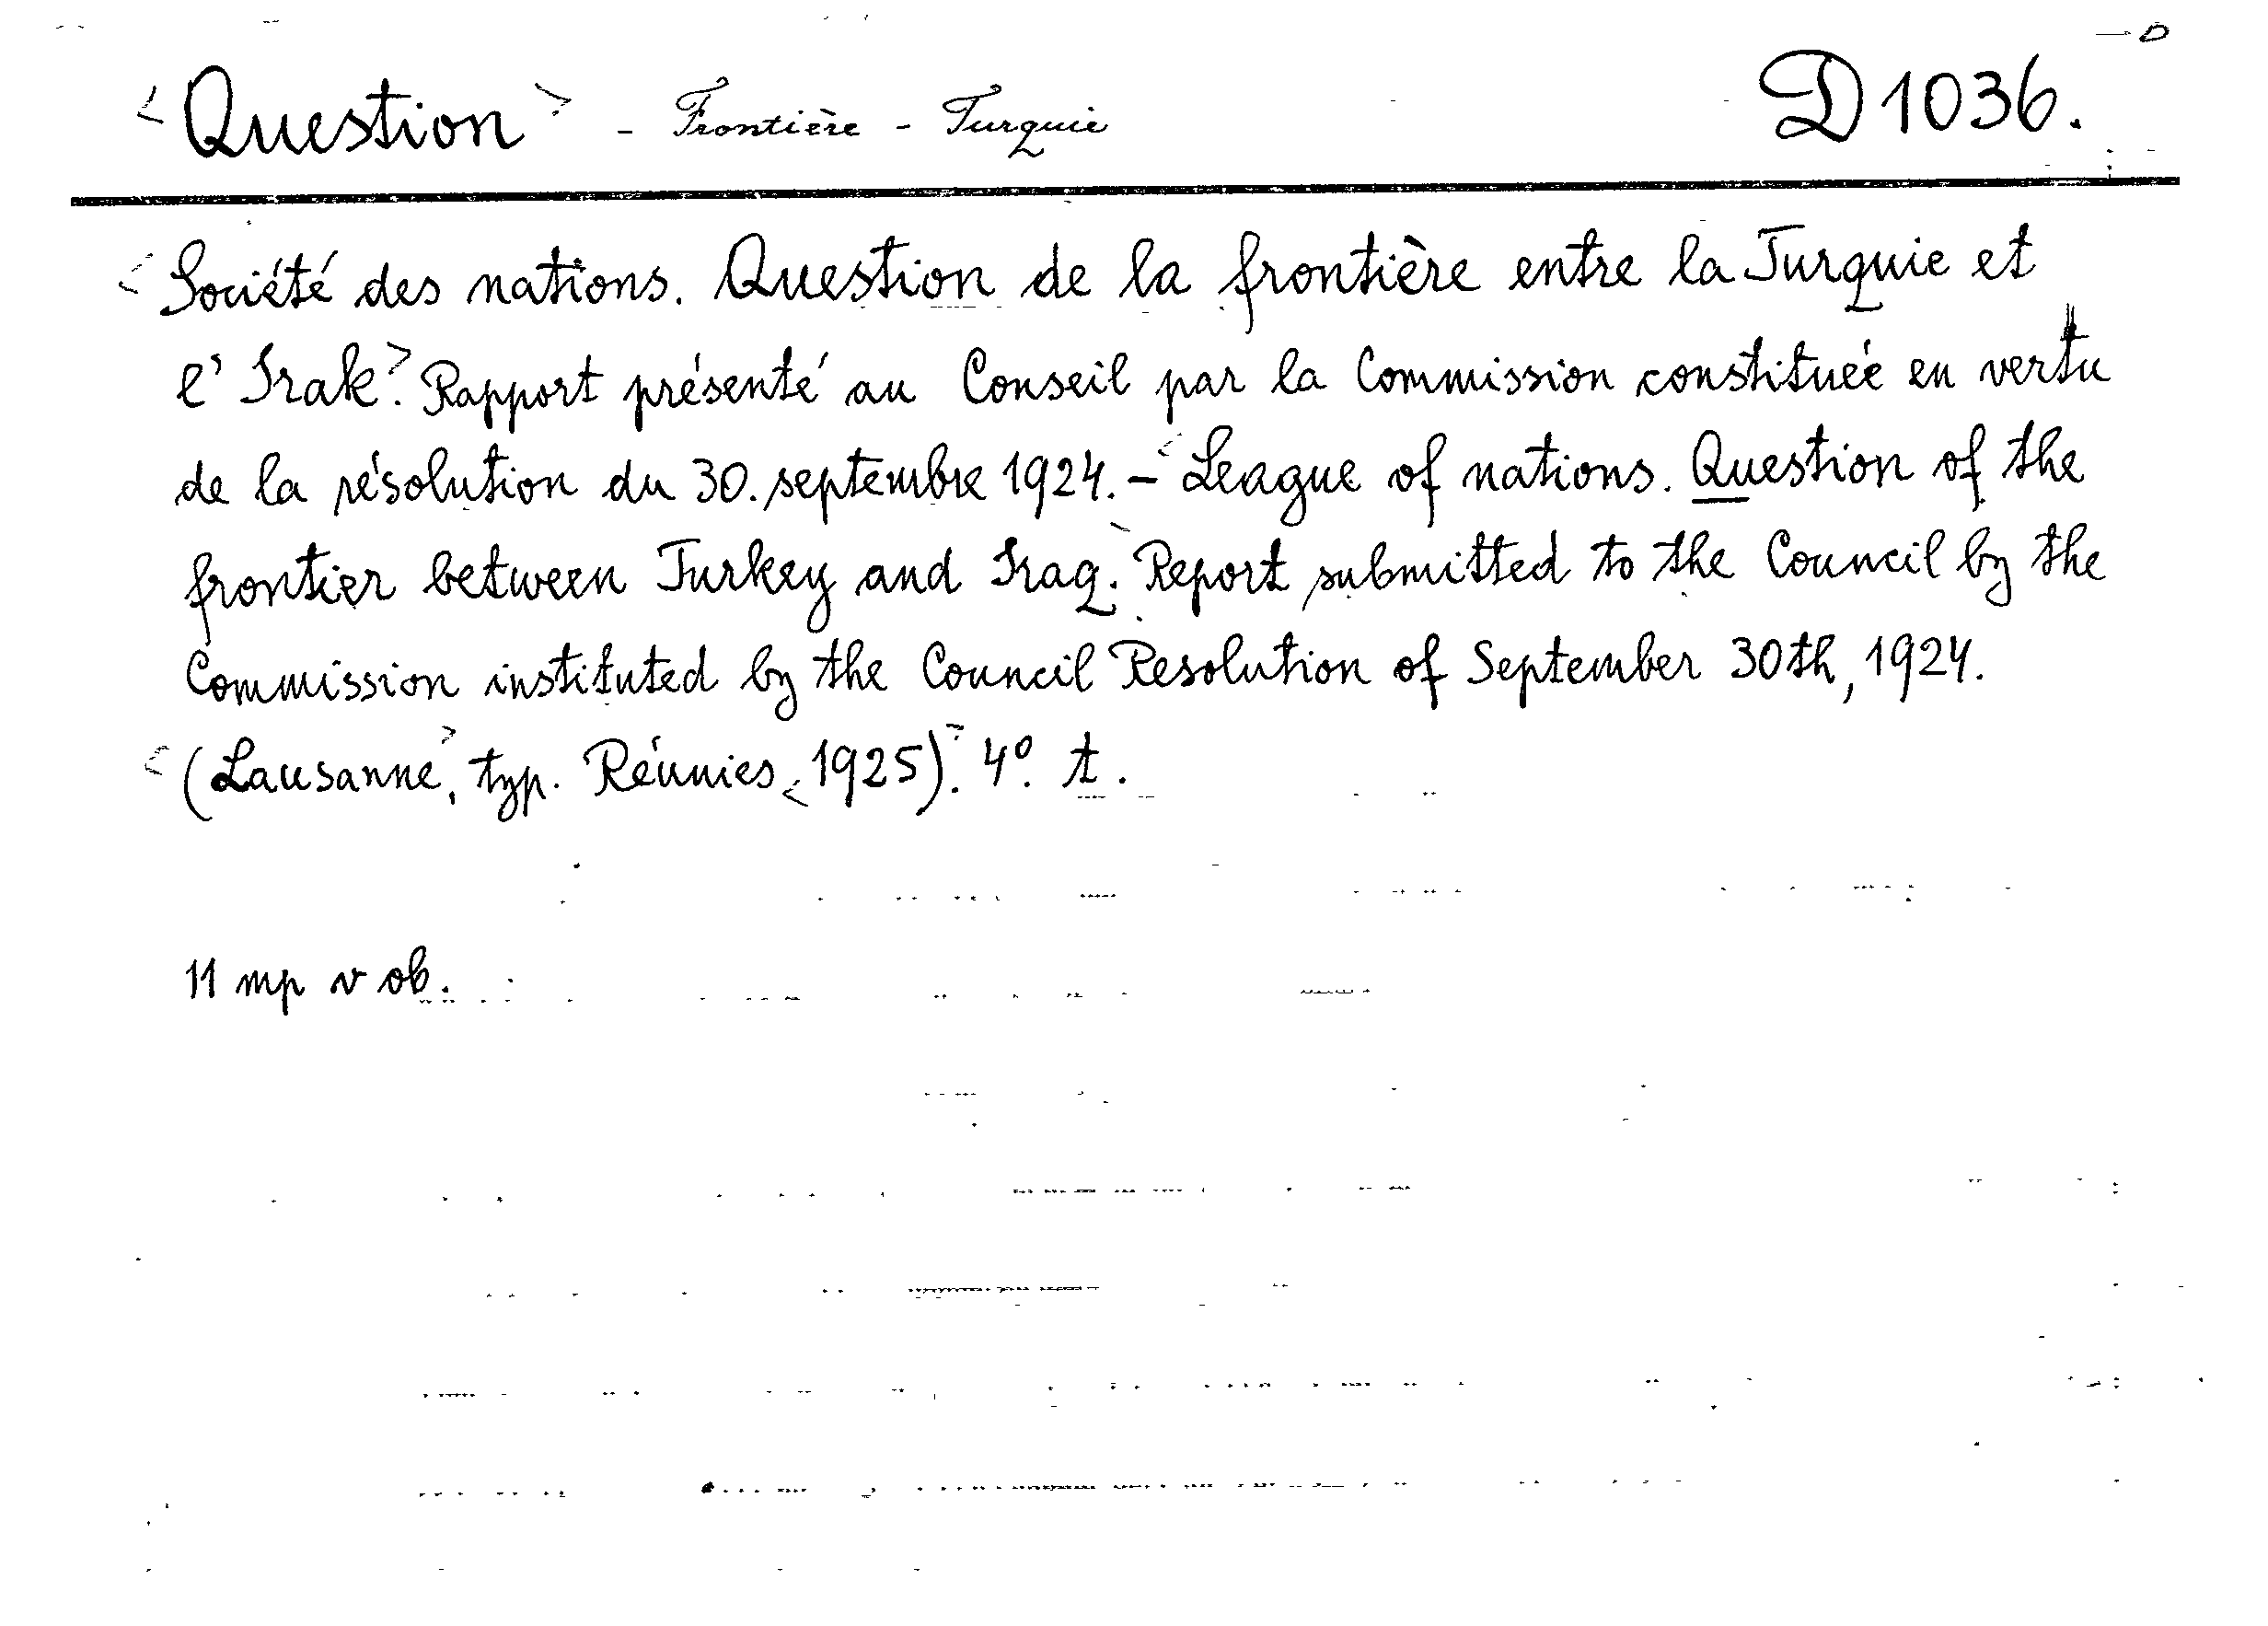 <Question> - Frontière - Turquie D 1036.
<Société des nations. Question de la frontière entre la Turquie et
l'Irak>. Rapport présenté au Conseil par la Commission constituée en vertu
de la résolution du 30. septembre 1924. - <League of nations. Question of the
frontier between Turkey and Iraq>. Report submitted to the Council by the
Commission instituted by the Council Resolution of September 30th, 1924.
<(Lausanne>, typ. Réunies <1925)>. 4º. t.
11 mp v ob.